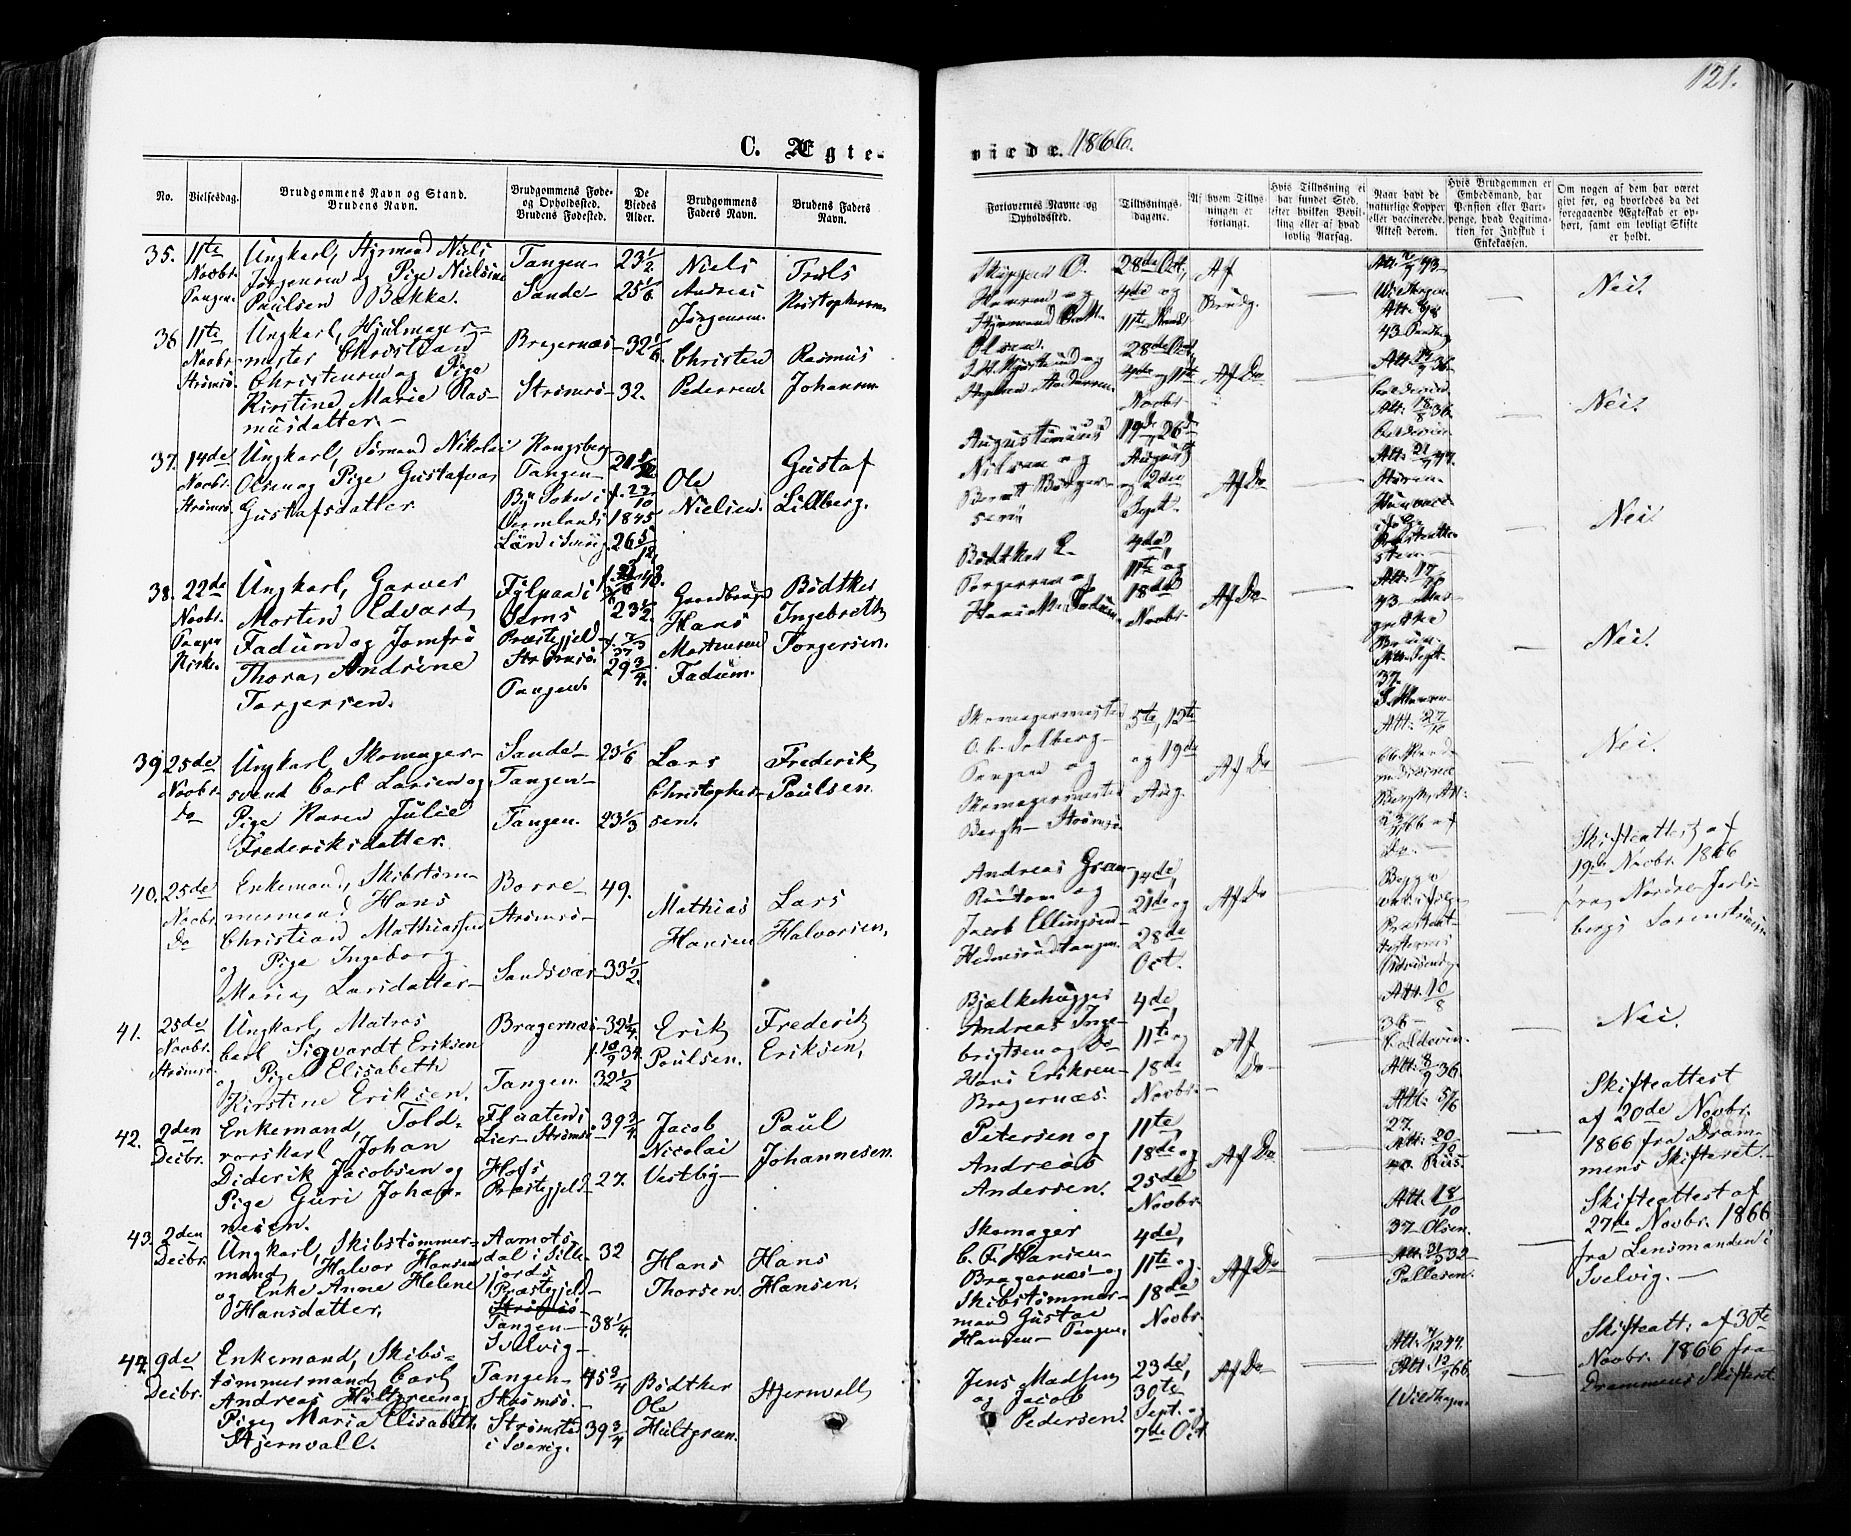 121.
C. Ægte-
viede. 1866.
No.
Vielsesdag.
Brudgommens Navn og Stand.
Brudens Navn.
Brudgommens Føde-
og Opholdssted.
Brudens Fødested.
De
Viedes
Alder.
Brudgommens
Faders Navn.
Brudens Faders
Navn.
Forlovernes Navne og
Opholdssted.
Tillysnings-
dagene.
Af hvem Tillys-
ningen er
forlangt.
Hvis Tillysning ei
har fundet Sted,
efter hvilken Bevil-
ling eller af hvad
lovlig Aarsag.
Naar havt de
naturlige Kopper
eller vaccinerede.
Attest derom.
Hvis Brudgommen er
Embedsmand, har
Pension eller Vart-
penge, hvad Legitima-
tion for Indskud i
Enkekassen.
Om nogen af dem har været
gift før, og hvorledes da det
foregaaende Ægteskab er op-
hørt, samt om lovligt Skifte
er holdt.
35.
11te
Novbr.
Tangen.
Ungkarl, Styrmand Niels
Jörgensen og Pige Nielsine
Paulsen Bakke.
Tangen-
Sande-
23 1/2
25 1/6
Niels
Andreas
Jörgensen.
Truls
Kristophersen
Skipper O.
Hansen og
Styrmand
Olsen.
28de Oct,
4de og
11te Novbr
Af
Brudg.
Nei.
36
11te
Novbr.
Strömsö.
Ungkarl, Hjulmager-
mester Christian
Christensen og Pige
Kirstine Marie Ras-
musdatter.-
Bragernæs-
Strömsö-
32 1/6
32.
Christen
Pedersen.
Rasmus
Johansen
28de Oct,
4de og 11te
Novbr
Af Do
Nei.
37.
14de
Novbr.
Strömsö.
Ungkarl, Sömand Nikolai
Olsen og Pige Gustafva
Gustafsdatter.
Kongsberg-
Tangen-
By Soken i
Vermlands
Län i Sverig.
21 5/12
f. 23/10
1845
26 5/12
Ole
Nielsen.
Gustaf
Lillberg.
Augustinius
Nilsen og
Berntt Börger-
sen
19de, 26de
August
og 2den
Sept.
Af Do
Nei.
38.
22de
Novbr.
Tangen
Kirke.
Ungkarl, Garver
Morten Edvard
Fadum og Jomfru
Thora Andrine
Torgersen.
Fylpaa i
Sems
Præstegjeld-
Strömsö.
Tangen.
23 1/2
29 3/4.
Gaardbruger
Hans
Mortensen
Fadum.
Bödtker
Ingebreth
Torgersen.
Bödtker E.
Torgersen og
Hans M. Fadum
4de,
11te og
18de
Novbr.
Af Do
Nei.
39
25de
Novbr.
Do
Ungkarl, Skomager-
svend Carl Larsen og
Pige Karen Julie
Frederiksdatter.
Sande-
Tangen-
Tangen.
23 1/6
23 1/3
Lars
Christopher-
sen.
Frederik
Paulsen.
Skomagermester
O. C. Solberg-
Tangen og
Skomagermester
Bergh-Strömsö.
5te, 12te
og 19de
Aug.
Af Do
Nei.
40.
25de
Novbr.
Do
Enkemand, Skibstöm-
mermand Hans
Christian Mathiassen
og Pige Ingeborg
Maria Larsdatter-
Borre-
Strömsö-
Sandsvær-
49.
33 1/2.
Mathias
Hansen
Lars
Halvorsen,
Andreas Gram-
og
Jacob Ellingsen
14de,
21de og
28de
Oct.
Af Do
Skifteattest af
19de Novbr. 1866
fra Nordre Jarls-
bergs Sorenskriveri
41.
25de
Novbr.
Strömsö
Ungkarl, Matros
Carl Sigvardt Eriksen
og Pige Elisabeth
Kirstine Eriksen.
Bragernæs-
Tangen.
32 1/4.
f. 10/9 34.
32 1/2
Erik
Paulsen.
Frederik
Eriksen,
Bjælkehugger
Andreas Inge-
brigtsen og Do-
Hans Eriksen-
Bragernæs.
4de,
11te og
18de
Novbr.-
Af
Do-
Nei.
42.
2den
Decbr.
Enkemand, Told-
rorskarl Johan
Diderik Jacobsen og
Pige Guri Johan-
nesen.
Flaaten i
Lier-Strömsö
Hofs
Præstegjeld-
39 3/4.
27.
Jacob
Nicolai
Vestby-
Paul
Johannesen.
Petersen og
Andreas
Andersen.
11te,
18de og
25de
Novbr.
Af Do
Att: 5/6
27.
Skifteattest
af 20de Novbr.
1866 fra Dram-
mens Skifteret.-
43.
2den
Decbr.
Ungkarl, Skibstömmer-
mand, Halvor Hansen
og Enke Anne Helene
Hansdatter.
Aamots
dal i Sille-
jords
Præstegjeld-
Tangen-
Svelvig-
32
38 1/4.
Hans
Thorsen.
Hans
Hansen.
Skomager
C. F. Hansen-
Bragernæs-og
Skibstömmer-
mand Gustav
Hansen-Tangen,
4de,
11te og
18de
Novbr.
Af Do
Att: 18/10
37. Olsen.
Att: 31/3 32
Pallesen.
Skifteattest af
27de Novbr. 1866
fra Lensmanden i
Svelvig.-
44.
9de
Decbr.
Enkemand, Skibs-
tömmermand Carl
Andreas Hultgreen og
Pige Maria Elisabeth
Stjernvall.
Tangen-
Strömsö.
Strömstad
i Sverig.
45 3/4
39 3/4
Bödtker
Ole
Hultgreen.
Stjernvall
Jens Madsen
og Jacob
Pedersen
23de,
30te
Sept. og
7de Oct.
Af Do
Att: 7/12 44.
Att: 12/7 66.
Wildhagen
Skifteatt: af 30te
Novbr. 1866 fra
Drammens Skifteret